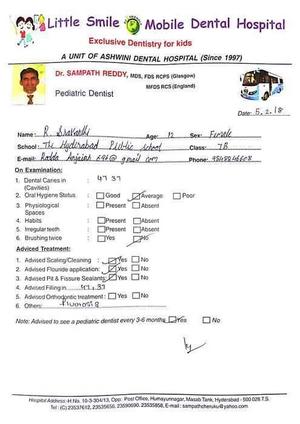 Little Smile Mobile Dental Hospital
Exclusive Dentistry for kids
A UNIT OF ASHWINI DENTAL HOSPITAL (Since 1997)
Dr. SAMPATH REDDY, MDS, FDS RCPS (Glasgow)
MFDS RCS (England)
Pediatric Dentist
Date: 5.2.18
Name: R. Sravathi Age: 12 Sex: Female
School: The Hyderabad Public School Class: 7B
E-mail: @gmail.com Phone:
On Examination:
1. Dental Caries in 47 37
(Cavities)
2. Oral Hygiene Status Good Average Poor
3. Physiological Present Absent
Spaces
4. Habits Present Absent
5. Irregular teeth Present Absent
6. Brushing twice Yes No
Adviced Treatment:
1. Advised Scaling/Cleaning Yes No
2. Advised Flouride application: Yes No
3. Advised Pit & Fissure Sealants: Yes No
4. Advised Filling in 47, 37
5. Advised Orthodontic treatment: Yes No
6. Others:
Note: Advised to see a pediatric dentist every 3-6 months Yes No
Hospital Address: H.No. 10-3-304/13, Opp: Post Office, Humayunnagar, Masab Tank, Hyderabad - 500 028 T.S.
Tel: (C) 23537612, 23535656, 23590690, 23535858, E-mail: sampathcheruku@yahoo.com